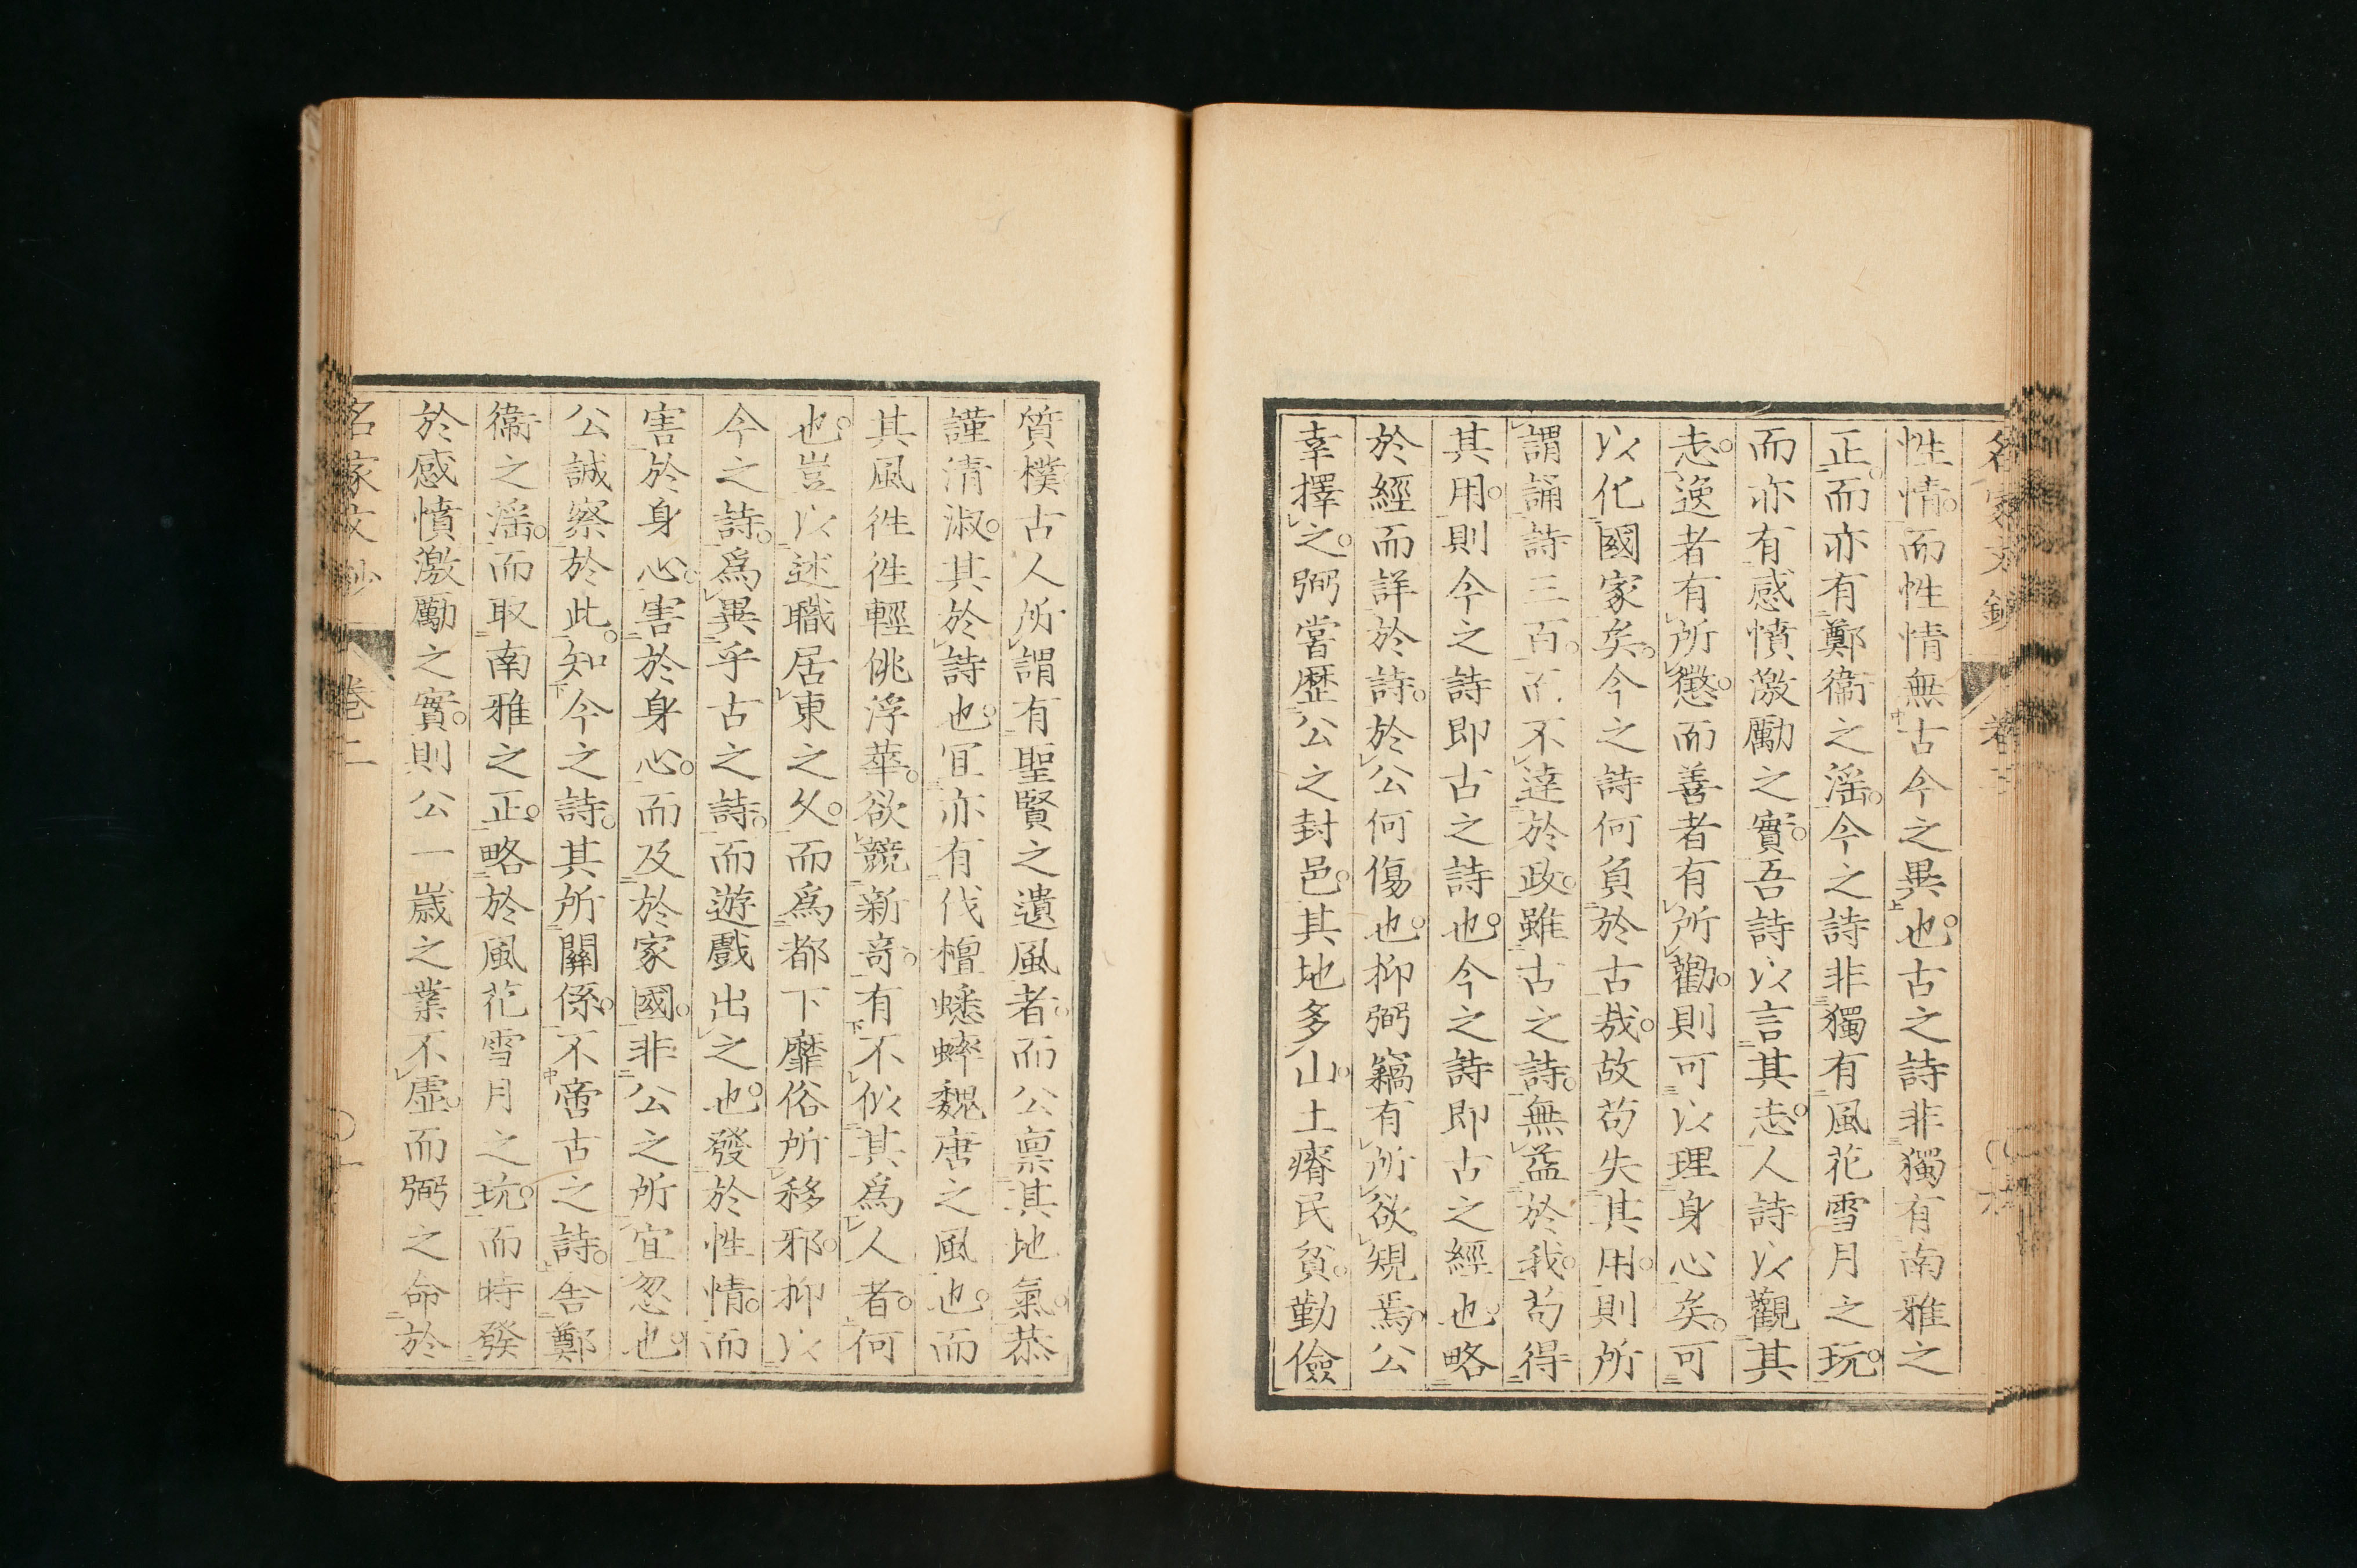 性情。而性情無古今之異也。古之詩非獨有南雅之
正。而亦有鄭衞之滛。今之詩非獨有風花雪月之玩。
而亦有感憤激勵之實。吾詩以言其志。人詩以觀其
志。逸者有所懲。而善者有所勸。則可以理身心矣。可
以化國家矣。今之詩何負於古哉。故苟失其用。則所
謂誦詩三百。而不達於政。雖古之詩。無益於我。苟得
其用。則今之詩即古之詩也。今之詩即古之經也。略
於經而詳於詩。於公何傷也。抑弼竊有所欲規焉。公
幸擇之。弼嘗歷公之封邑。其地多山。土瘠民貧。勤儉
質樸古人所謂有聖賢之遺風者。而公禀其地氣。恭
謹清淑。其於詩也。宜亦有伐檀蟋蟀魏唐之風也。而
其風徃徃輕佻浮華。欲競新竒。有不似其爲人者。何
也。豈以述職居東之久。而爲都下靡俗所移邪。抑以
今之詩。爲異乎古之詩。而遊戲出之也。發於性情。而
害於身心。害於身心。而及於家國。非公之所宜忽也。
公誠察於此。知今之詩。其所關係。不啻古之詩。舎鄭
衞之滛。而取南雅之正。略於風花雪月之玩。而時發
於感憤激勵之實。則公一嵗之業不虛。而弼之命於
名家文鈔 卷二